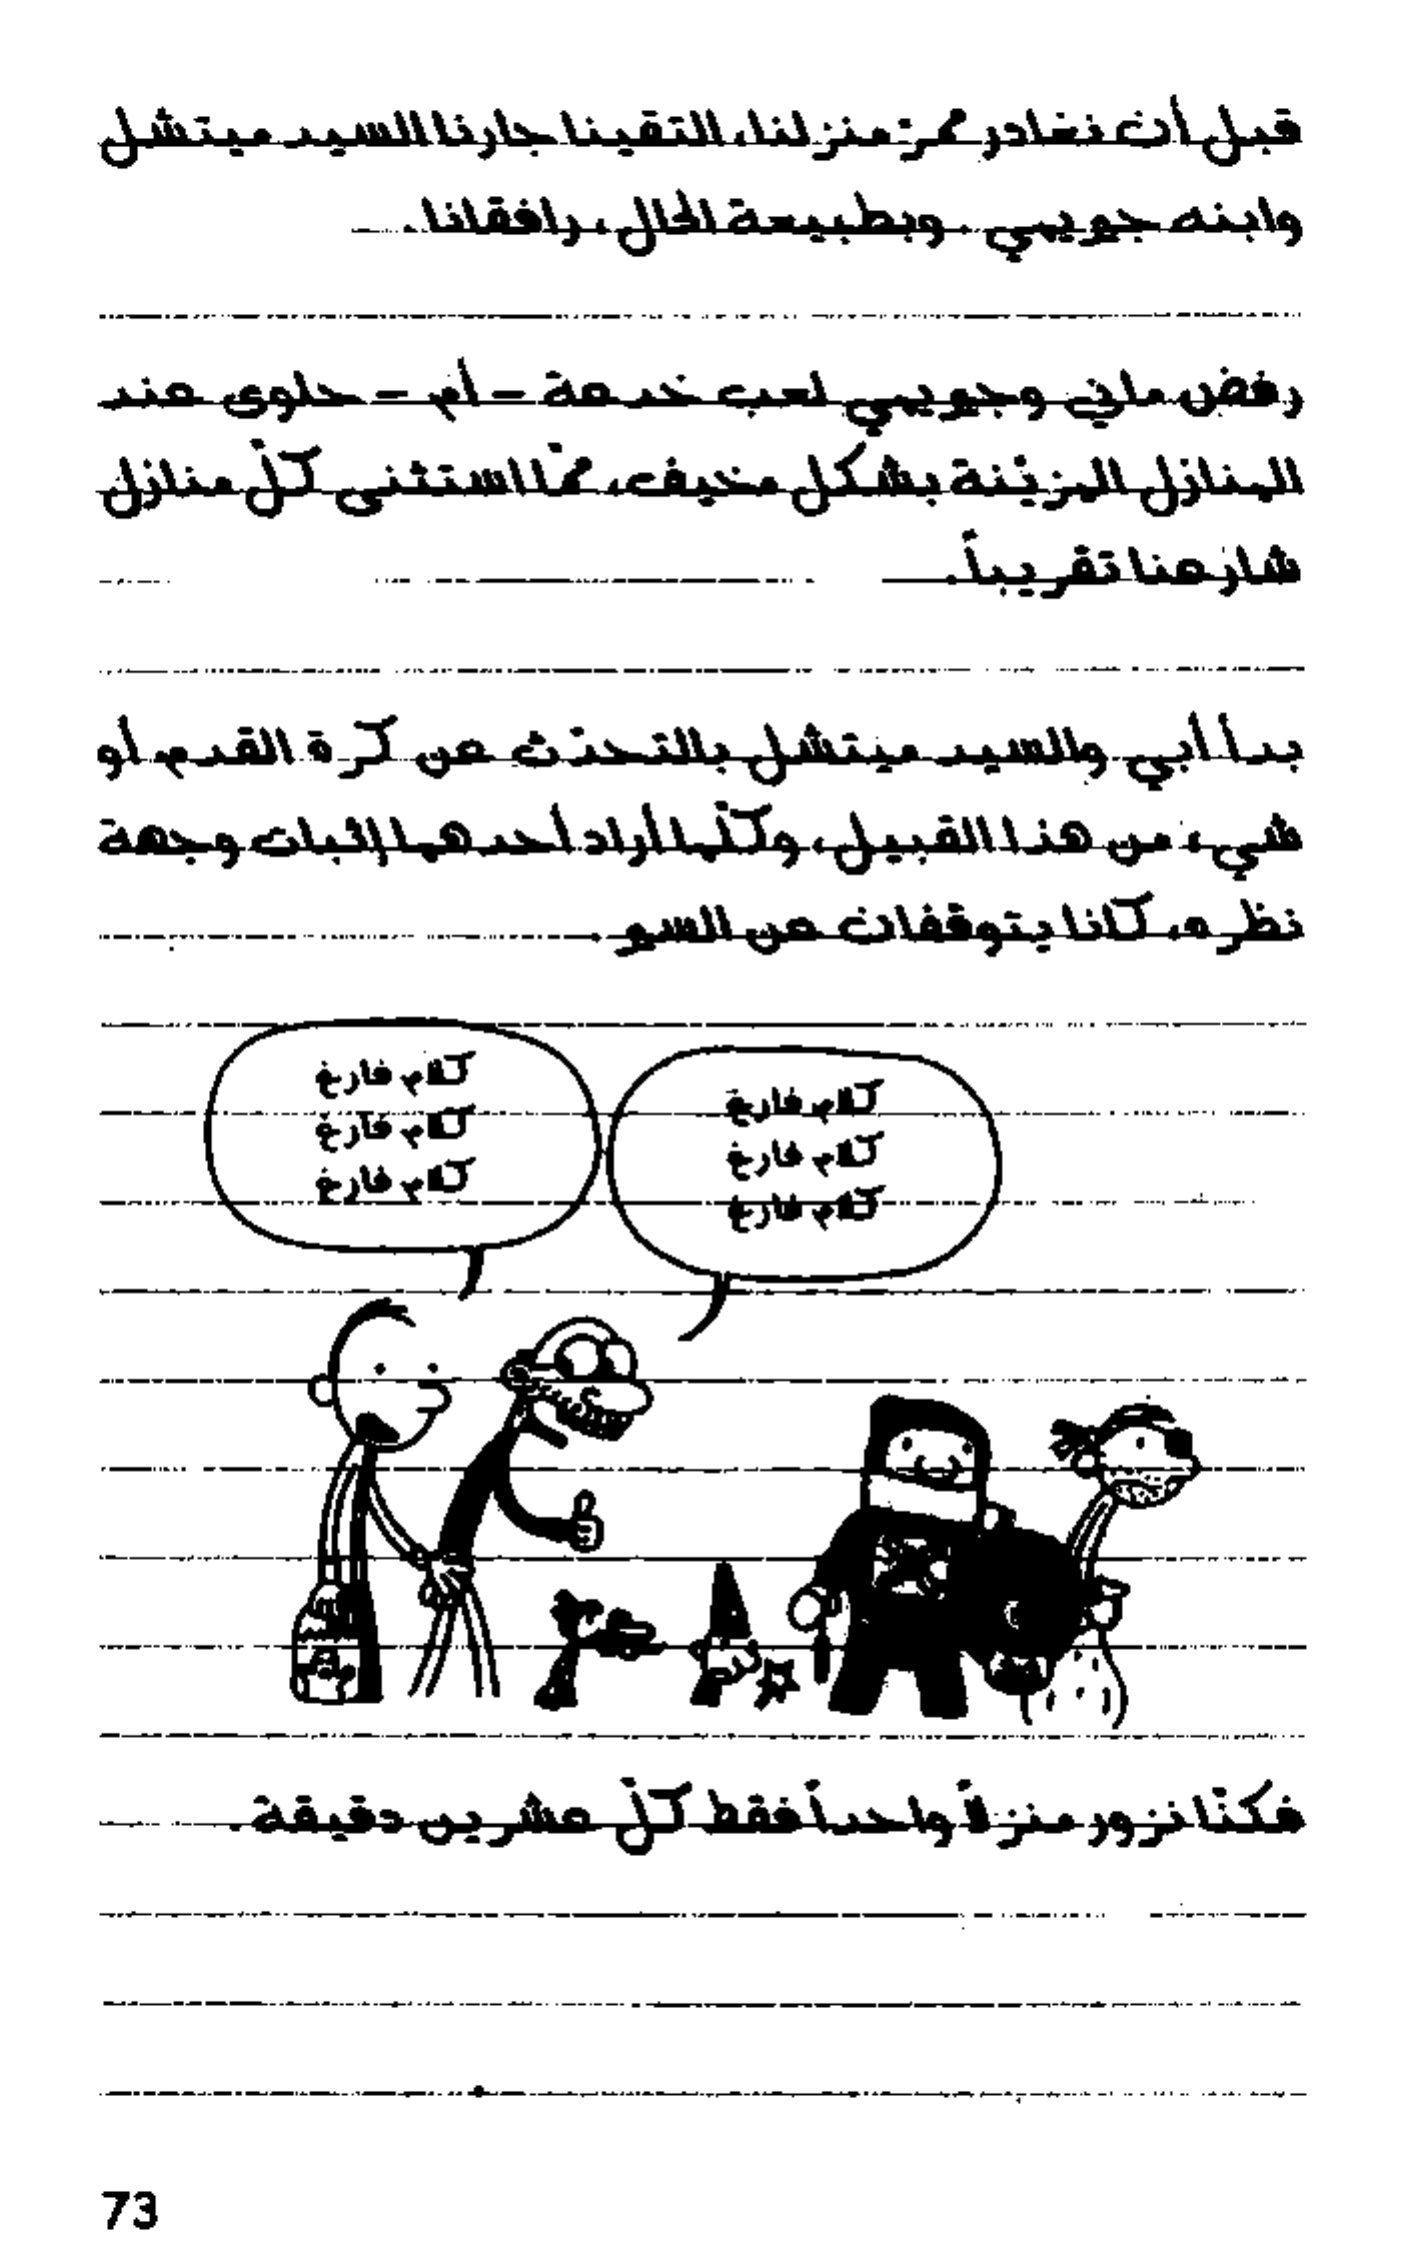 قبل أن نغادر ممرّ منزلنا، التقينا جارنا السيد ميتشل
وابنه جويمي. وبطبيعة الحال، رافقانا.
رفض ماني وجويمي لعب خدعة - أم - حلوى عند
المنازل المزيّنة بشكل مخيف، ممّا استثنى كلّ منازل
شارعنا تقريباً.
بدأ أبي والسيد ميتشل بالتحدّث عن كرة القدم أو
شيء من هذا القبيل، وكلّما أراد أحدهما إثبات وجهة
نظره، كانا يتوقفان عن السير.
كلام فارغ
كلام فارغ
كلام فارغ
كلام فارغ
كلام فارغ
كلام فارغ
فكنّا نزور منزلاً واحداً فقط كلّ عشرين دقيقة.
73